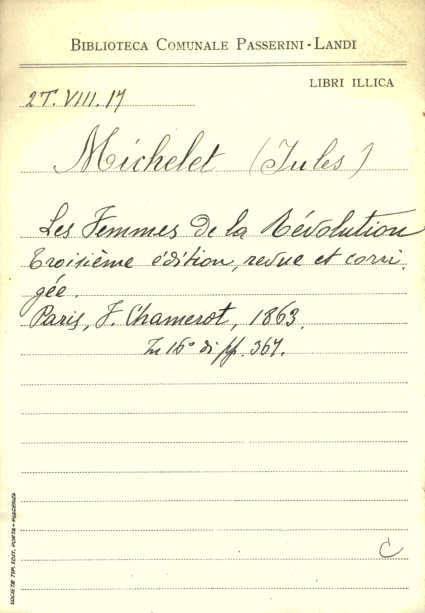 BIBLIOTECA COMUNALE PASSERINI-LANDI
LIBRI ILLICA
2T. VIII. 17
Michelet (Jules)
Les Femmes de la Révolution
Troisième édition, revue et corri-
gée.
Paris, F. Chamerot, 1863.
In 16° di pp. 367.
C
SOCIETÀ TIP. EDIT. PORTA - PIACENZA